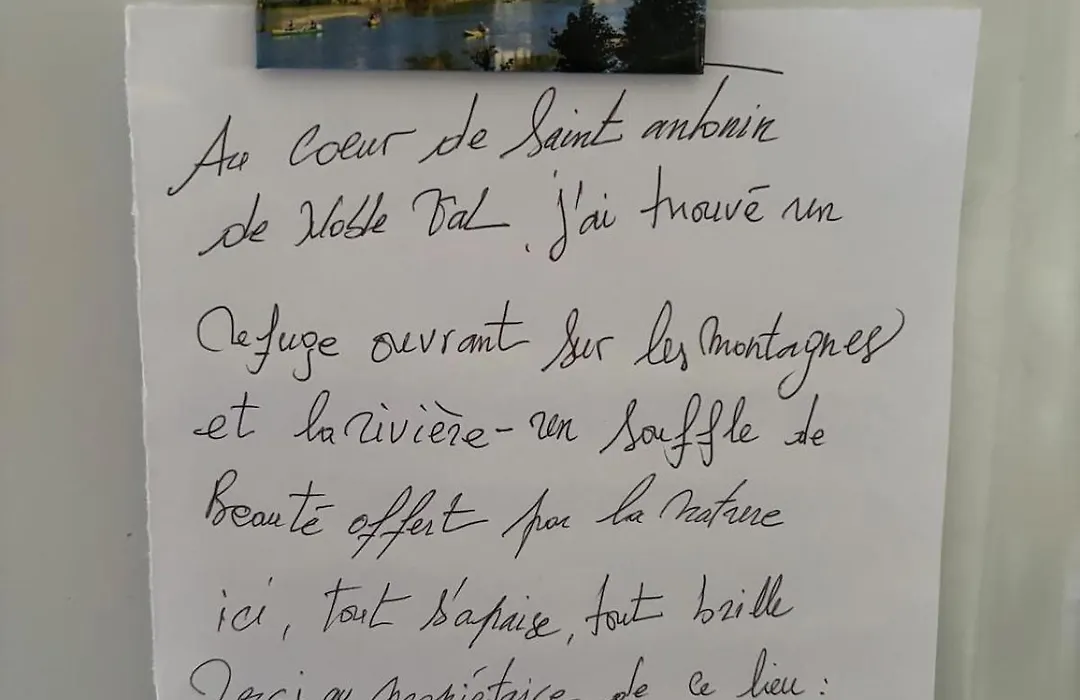 Au Coeur de Saint antonin
de Noble Val, j'ai trouvé un
Refuge ouvrant sur les montagnes
et la rivière - un souffle de
Beauté offert par la nature
ici, tout s'apaise, tout brille
Merci au propriétaire de ce lieu :